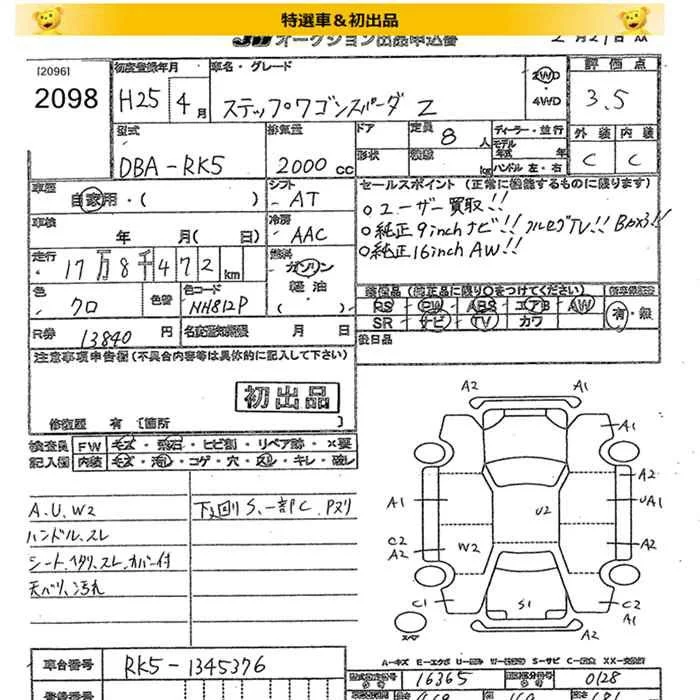 特選車＆初出品
オークション出品申込書 2月21日
[2096]
2098
初度登録年月 車名・グレード 評価点
H25 4月 ステップワゴンスパーダ Z 2WD・4WD 3.5
型式 排気量 ドア 定員 8人 ディーラー・並行 外装 内装
DBA-RK5 2000cc 形状 積載 kg モデル年式 年 ハンドル 左・右 C C
車歴 自家用・( ) シフト AT
セールスポイント (正常に機能するものに限ります)
○ユーザー買取!!
○純正9inchナビ!! フルセグTV!! Bカメ!!
○純正16inch AW!!
車検 年 月( 日) 冷房 AAC
走行 17万8千472km 燃料 ガソリン 軽油 ( )
色 クロ 色替 色コード NH812P
装備品 (純正品に限り○をつけてください)
PS PW ABS エアB AW 有・無
SR ナビ TV カワ
R券 13840円 名変通知期限 月 日
後日品
注意事項申告欄(不具合内容等は具体的に記入して下さい)
初出品
修復歴 有 [箇所 ]
検査員 FW キズ・飛石・ヒビ割・リペア跡・×要
記入欄 内装 キズ・汚れ・コゲ・穴・スレ・キレ・破レ
A.U.W2
ハンドル、スレ
シート、ヘタリ、スレ、カバー付
天バリ、汚れ
下廻りS、一部C、Pヌリ
A2 A1
A1
A2
A1 UA1
U2
C2
A2 W2 A2
C1 S1 C2
A1
スペア A2
A-キズ E-エクボ U-凹み W-波 S-サビ C-腐食 XX-交換済
車台番号 RK5-1345376
型式指定番号 16365 類別区分番号 0128